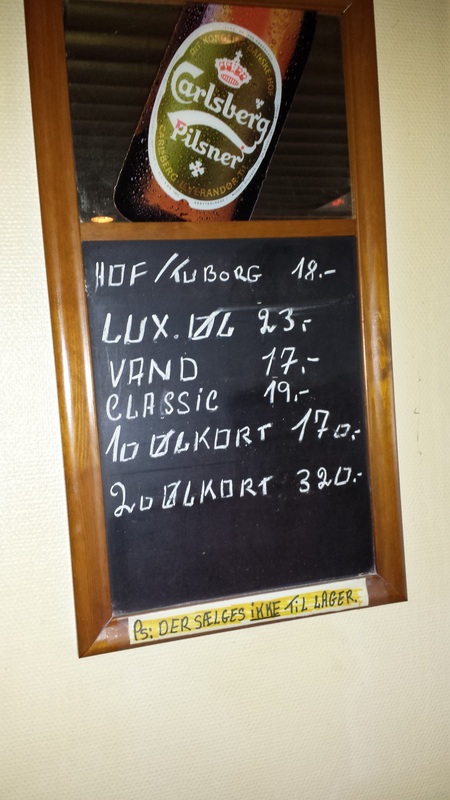 Carlsberg
Pilsner
HOF/TUBORG 18.-
LUX. ØL 23,-
VAND 17,-
CLASSIC 19,-
10 ØLKORT 170,-
20 ØLKORT 320,-
Ps: DER SÆLGES IKKE TIL LAGER.